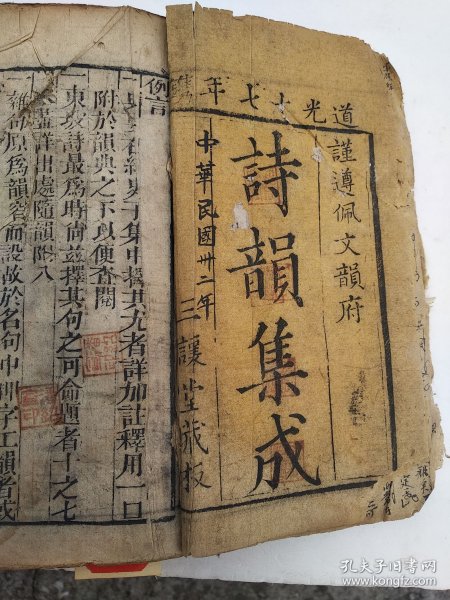 道光十七年鐫
謹遵佩文韻府
詩韻集成
中華民國卅二年
三讓堂藏板
例言
集中擇其尤者詳加註釋用一口
附於韻典之下以便查閱
一東坡詩最爲時尚茲擇其句之可命題者十之七
詳出處隨韻附入
一雜句原爲韻窄而設故於名句中押字工韻者或
孔夫子旧书网
www.kongfz.com